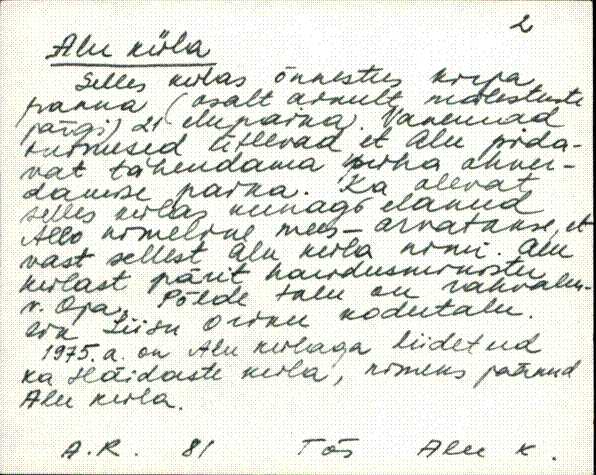 2
Alu küla
Selles külas õnnestus kirja
panna (osalt ainult mälestuste
järgi) 21 elupaika. Vanemad
inimesed ütlevad et Alu pida-
vat tähendama püha ohver-
damise paika. Ka olevat
selles külas kunagi elanud
Allo nimeline mees – arvatakse, et
vast sellest Alu küla nimi. Alu
külast pärit haridusminister
v. Oja. Põlde talu on rahvalau-
lik Liisu Oriku kodutalu.
1975. a. on Alu külaga liidetud
ka Häidaste küla, nimeks jäänud
Alu küla.
A.R. 81 Tõs Alu k.